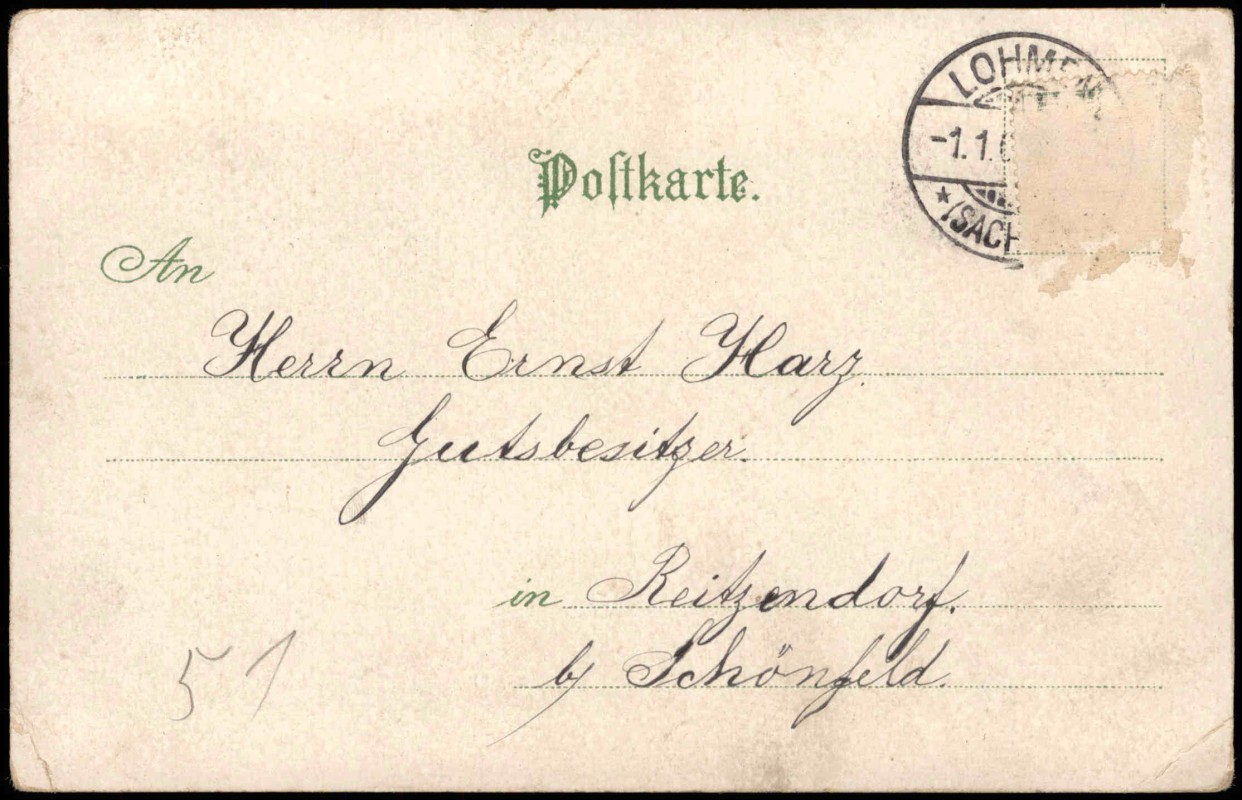 LOHMEN
-1.1.0
* (SACH
Postkarte.
An
Herrn Ernst Harz
Gutsbesitzer.
in Reitzendorf.
b/ Schönfeld.
51